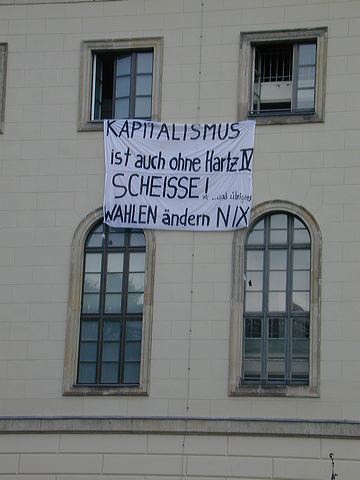 KAPITALISMUS
ist auch ohne Hartz IV
SCHEISSE!
...und übrigens
WAHLEN ändern NIX